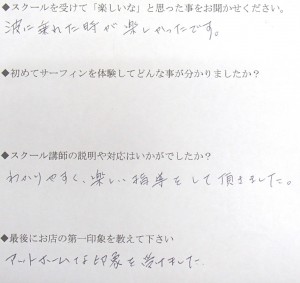 ◆スクールを受けて「楽しいな」と思った事をお聞かせください。
波に乗れた時が楽しかったです。
◆初めてサーフィンを体験してどんな事が分かりましたか？
◆スクール講師の説明や対応はいかがでしたか？
わかりやすく、楽しい指導をして頂きました。
◆最後にお店の第一印象を教えて下さい
アットホームな印象を受けました。